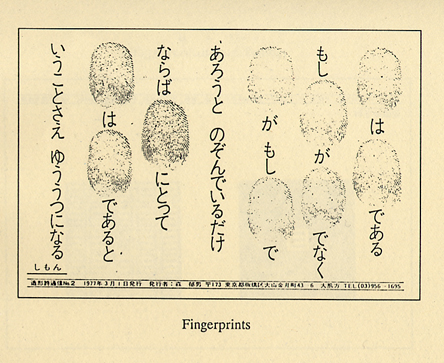 は である
もし が でなく
が もし で
あろうと のぞんでいるだけ
ならば にとって
は であると
いうことさえ ゆううつになる
しもん
通信№2 1977年3月1日発行 発行者:森 郁男 〒173 東京都板橋区大山金井町43 6 TEL(03)956-1695
Fingerprints